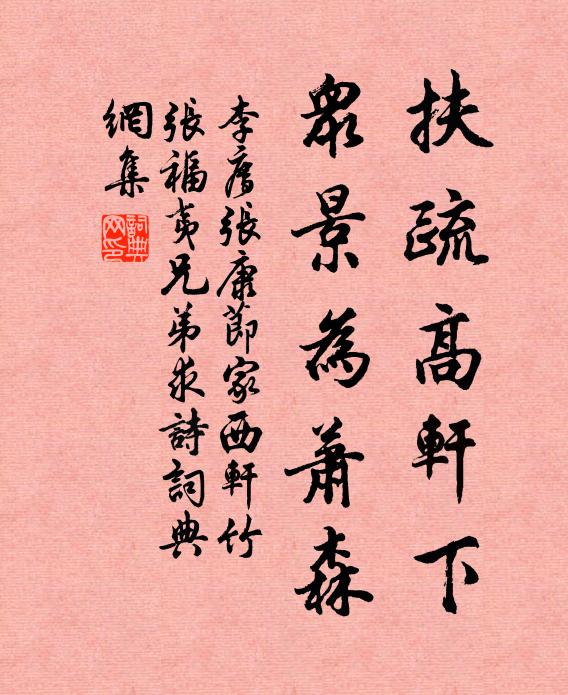 扶疏高軒下
眾景為蕭森
李廌張康節家西軒竹
張福夷兄弟求詩詞典
網集
詞典
网印